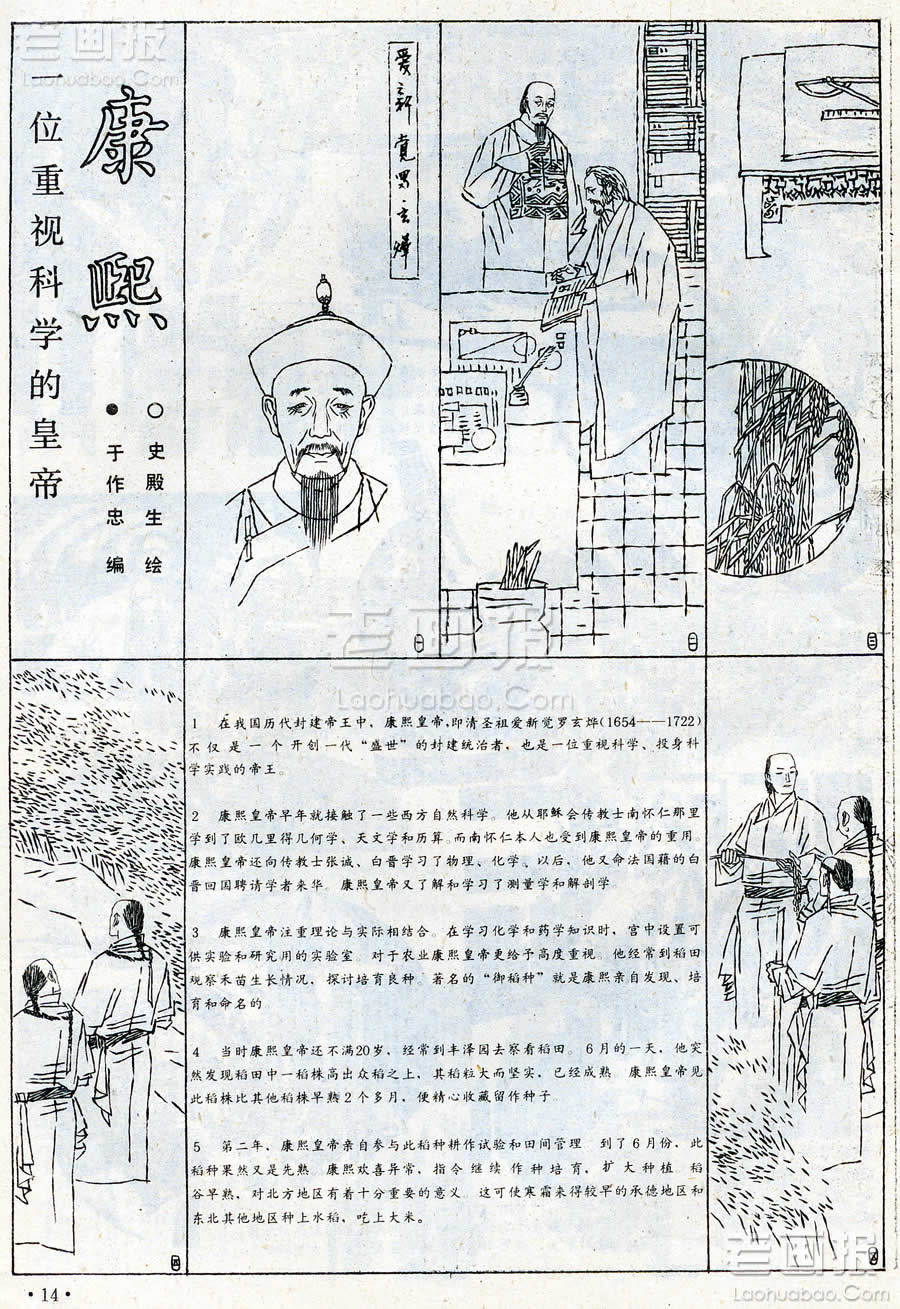 老画报
Laohuabao.Com
康熙
一位重视科学的皇帝
○史殿生 绘
●于作忠 编
爱新觉罗玄烨
一
二
三
老画报
Laohuabao.Com
1 在我国历代封建帝王中，康熙皇帝，即清圣祖爱新觉罗玄烨(1654——1722)
不仅是一个开创一代“盛世”的封建统治者，也是一位重视科学、投身科
学实践的帝王。
2 康熙皇帝早年就接触了一些西方自然科学。他从耶稣会传教士南怀仁那里
学到了欧几里得几何学、天文学和历算。而南怀仁本人也受到康熙皇帝的重用。
康熙皇帝还向传教士张诚、白晋学习了物理、化学。以后，他又命法国籍的白
晋回国聘请学者来华。康熙皇帝又了解和学习了测量学和解剖学。
3 康熙皇帝注重理论与实际相结合。在学习化学和药学知识时，宫中设置可
供实验和研究用的实验室。对于农业康熙皇帝更给予高度重视。他经常到稻田
观察禾苗生长情况，探讨培育良种。著名的“御稻种”就是康熙亲自发现、培
育和命名的。
4 当时康熙皇帝还不满20岁，经常到丰泽园去察看稻田。6月的一天，他突
然发现稻田中一稻株高出众稻之上，其稻粒大而坚实，已经成熟。康熙皇帝见
此稻株比其他稻株早熟2个多月，便精心收藏留作种子。
5 第二年，康熙皇帝亲自参与此稻种耕作试验和田间管理。到了6月份，此
稻种果然又是先熟。康熙欢喜异常，指令继续作种培育，扩大种植。稻
谷早熟，对北方地区有着十分重要的意义。这可使寒霜来得较早的承德地区和
东北其他地区种上水稻，吃上大米。
四
五
老画报
Laohuabao.Com
·14·